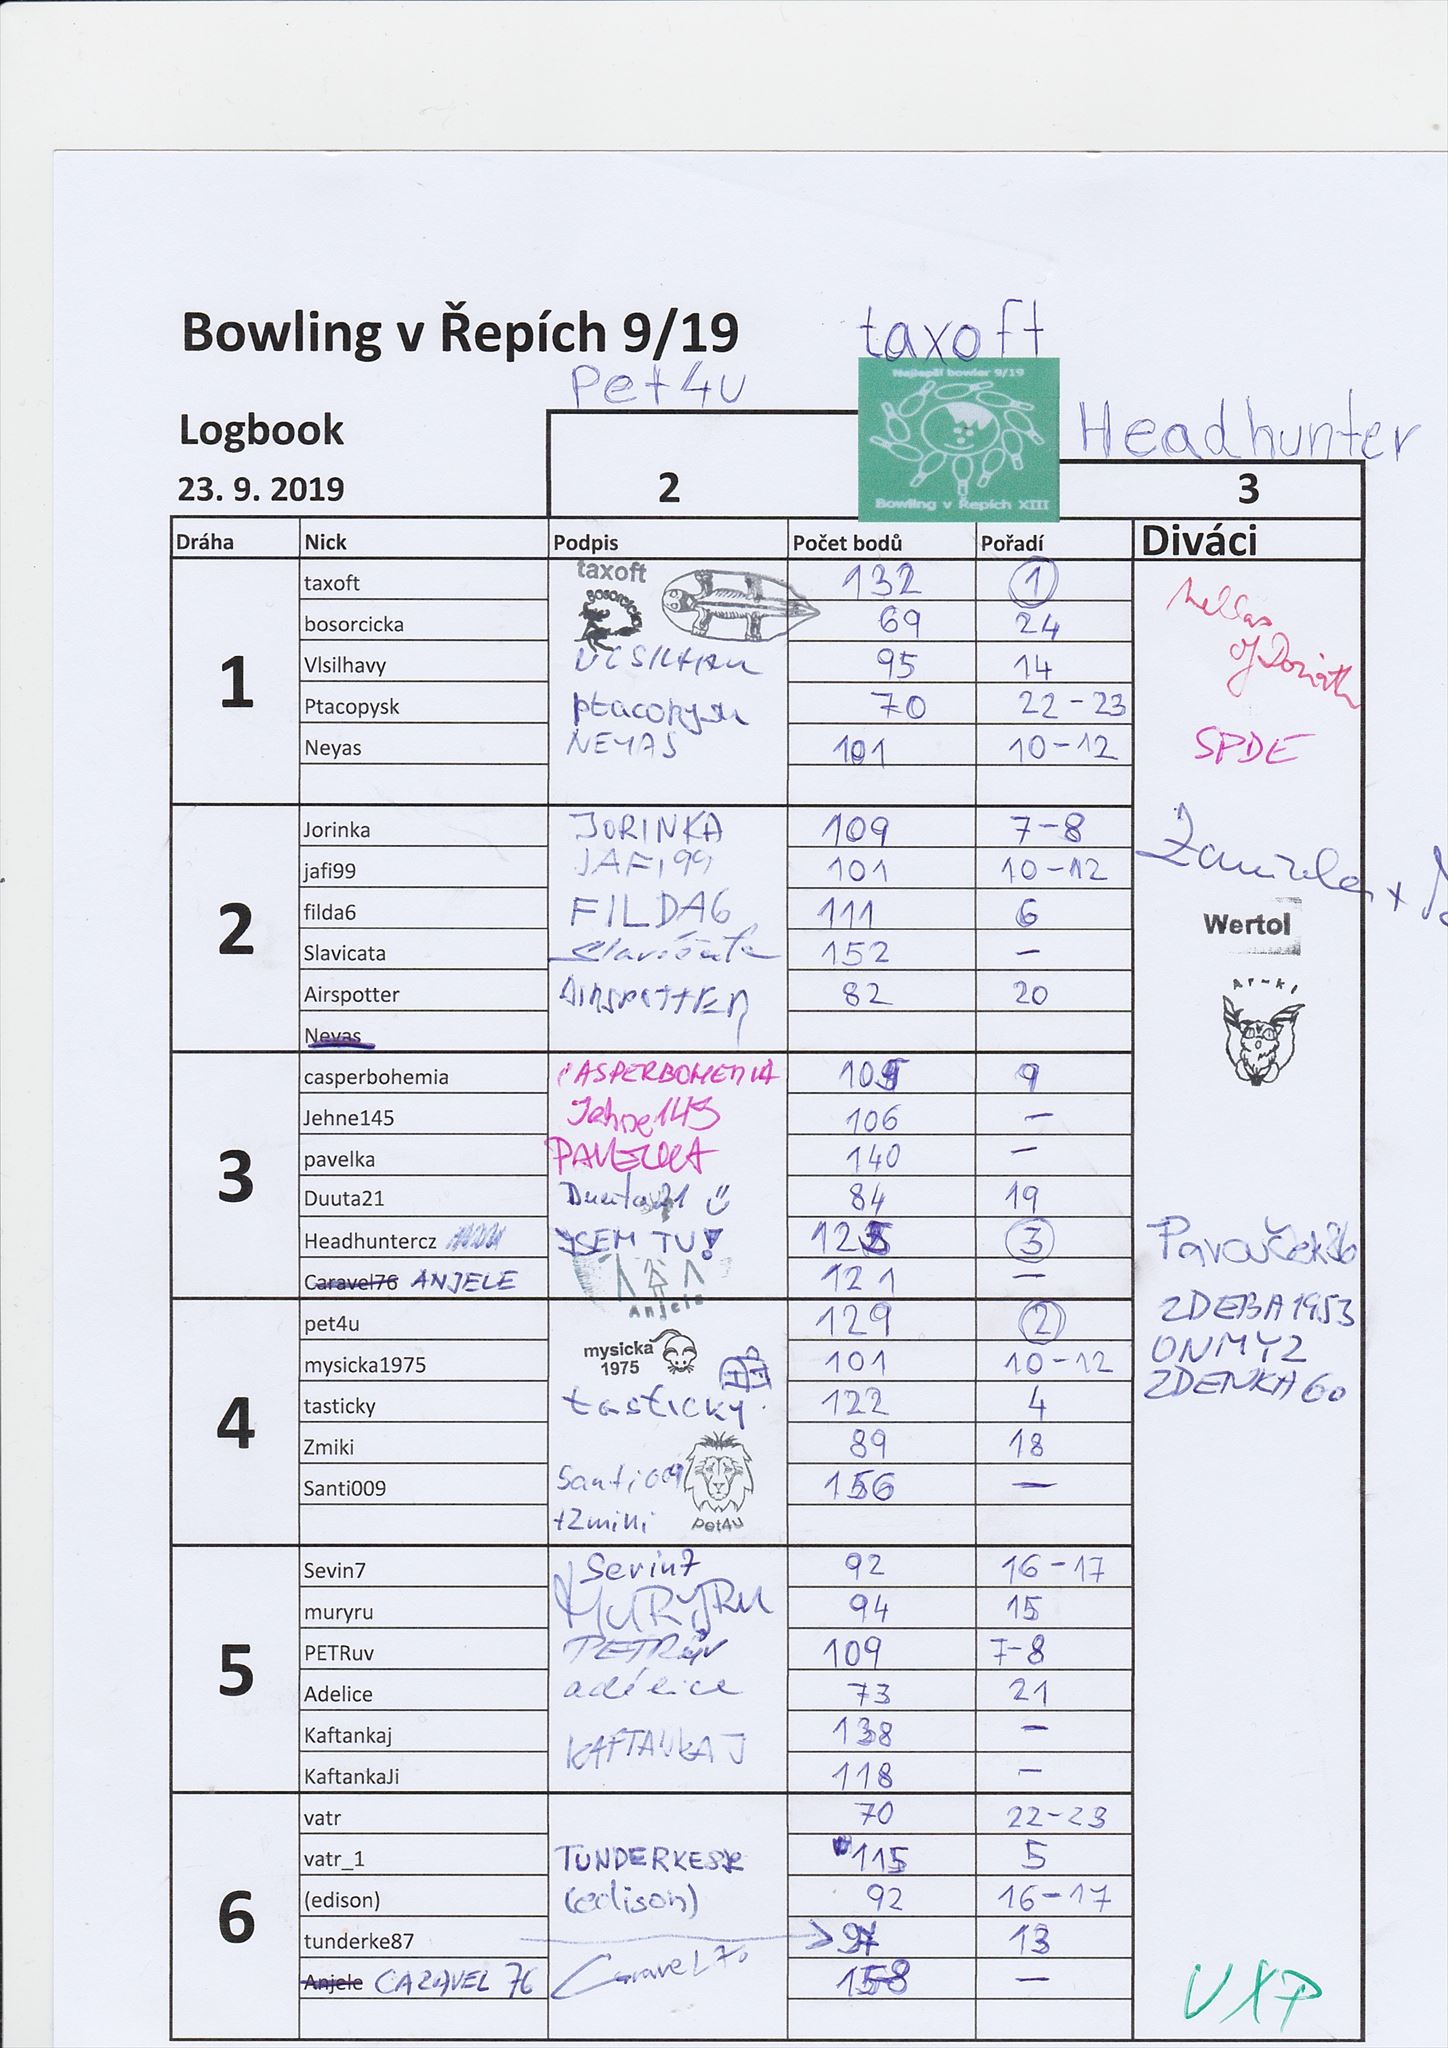 Bowling v Řepích 9/19
taxoft
Pet4u
Nejlepší bowler 9/19
Bowling v Řepích XIII
Headhunter
Logbook
23. 9. 2019
2
3
Dráha Nick Podpis Počet bodů Pořadí Diváci
1
taxoft taxoft 132 1
bosorcicka BOSORCICKA 69 24
Vlsilhavy VLSILHAVY 95 14
Ptacopysk ptacopysk 70 22-23
Neyas NEYAS 101 10-12
2
Jorinka JORINKA 109 7-8
jafi99 JAFI99 101 10-12
filda6 FILDA6 111 6
Slavicata Slavičata 152 –
Airspotter AIRSPOTTER 82 20
Neyas
3
casperbohemia CASPERBOHEMIA 105 9
Jehne145 Jehne145 106 –
pavelka PAVELKA 140 –
Duuta21 Duuta21 84 19
Headhuntercz JSEM TU! 125 3
Caravel76 ANJELE Anjele 121 –
4
pet4u 129 2
mysicka1975 mysicka 1975 101 10-12
tasticky tasticky 122 4
Zmiki 89 18
Santi009 Santi009 156 –
pet4u
5
Sevin7 Sevin7 92 16-17
muryru MURYRU 94 15
PETRuv PETRův 109 7-8
Adelice adélice 73 21
Kaftankaj KAFTANKAJ 138 –
KaftankaJi 118 –
6
vatr 70 22-23
vatr_1 115 5
(edison) (edison) 92 16-17
tunderke87 97 13
Anjele CARAVEL 76 Caravel76 158 –
of Doriath
SPDE
Wertol
Arnki
Pavouček86
ZDEBA1953
ONMY2
ZDENKA60
VXP